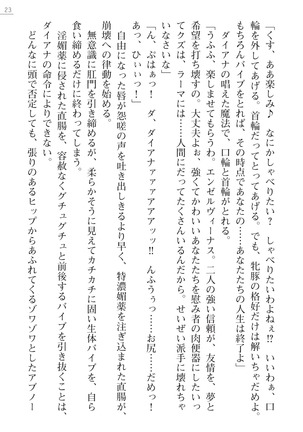 23
「くす、ああ楽しみ♪　なにかしゃべりたい？　しゃべりたいわよねぇ?!　いいわぁ、口
輪を外してあげる。首輪だってとってあげる。でも、牝豚の格好だけは解いちゃだめよ。
もちろんバイブをとれば、その時点であなたの……あなたたちの人生は終了よ」
ダイアナの唱えた魔法で、口輪と首輪がとれる。
「うふふ、楽しませてもらうわ。エンゼルヴィーナス。二人の強い信頼が、友情を、夢と
希望を打ち壊すの。大丈夫よぉ、強くてかわいいあなたたちを慰み者の肉便器にしたいっ
てクズは、ラーマには……人間にだってたくさんいるんだから。せいぜい派手に壊れちゃ
いなさいな」
「ん、ぷはぁっ！　ダ、ダイアナァァァアアアッッ!!　んふうぅっ……お尻……だめっ！
あっ、ひぃいっ！」
自由になった唇が怨嗟の声を吐き出しきるより早く、特濃媚薬を注ぎ込まれた直腸が、
崩壊への律動を始める。
無意識に肛門を引き締めるが、柔らかそうに見えてカチカチに固い生体バイブを、自ら
食い締めるだけに終わってしまう。
淫媚薬に侵された直腸を、容赦なくグチュグチュと前後するバイブを引き抜くことは、
ダイアナの命令によりできない。
どんなに頭で否定しても、張りのあるヒップがくねるゾワゾワとしたアブノー